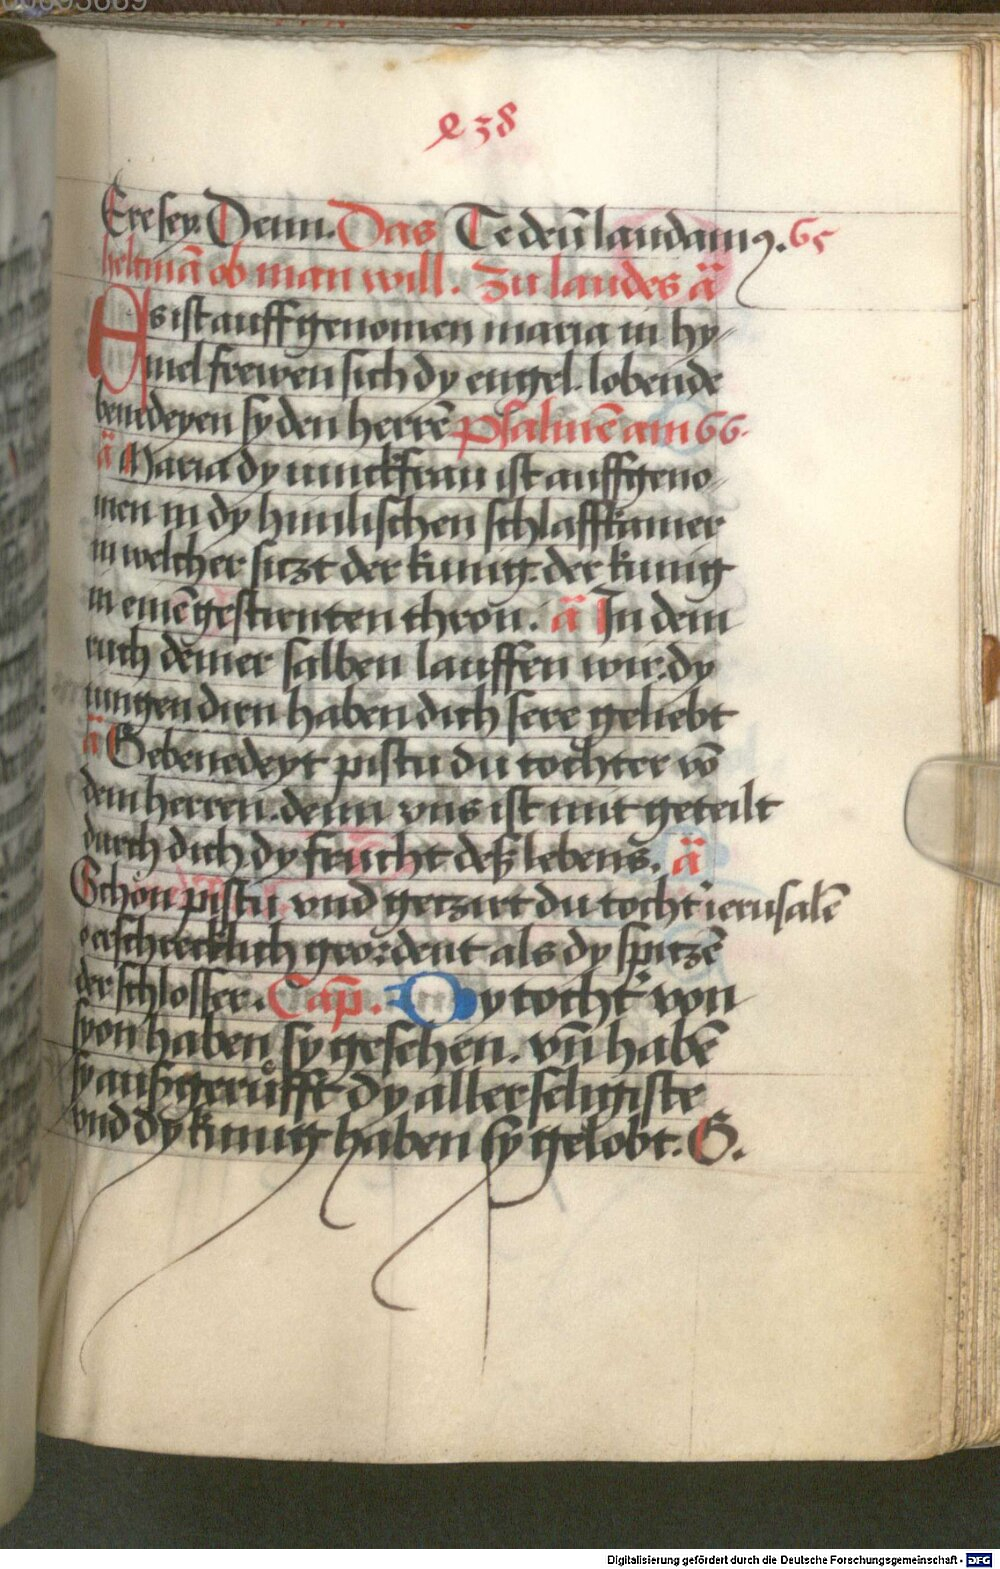 238
Ere sey. Dem̄. Das Te deū laudamꝰ. 65
heltmā ob man will. Zu laudes ä
Es ist auffgenomen maria in hy⸗
mel frewen sich dy engel. lobende
benedeyen sy den herrē psalmē am 66.
ä Maria dy iunckfrau ist auffgeno⸗
men in dy himlischen schlaffkamer
in welcher siczt der kunig. der kunig
in einē gestirnten thron. ä In dem
ruch deiner salben lauffen wir. dy
iungen dirn haben dich sere geliebt
ä Gebenedeyt pistu du tochter vō
dem herren. denn vns ist mit geteilt
durch dich dy frucht deß lebens. ä
Schön pistu vnd geczirt du tocht' ierusalē
erschrecklich geordent als dy spiczē
der schlosser. Cap̄. Dy tocht' von
syon haben sy gesehen. vn̄ habē
sy außgerüfft dy allerseligiste
vnd dy kunig haben sy gelobt. G.
Digitalisierung gefördert durch die Deutsche Forschungsgemeinschaft - DFG